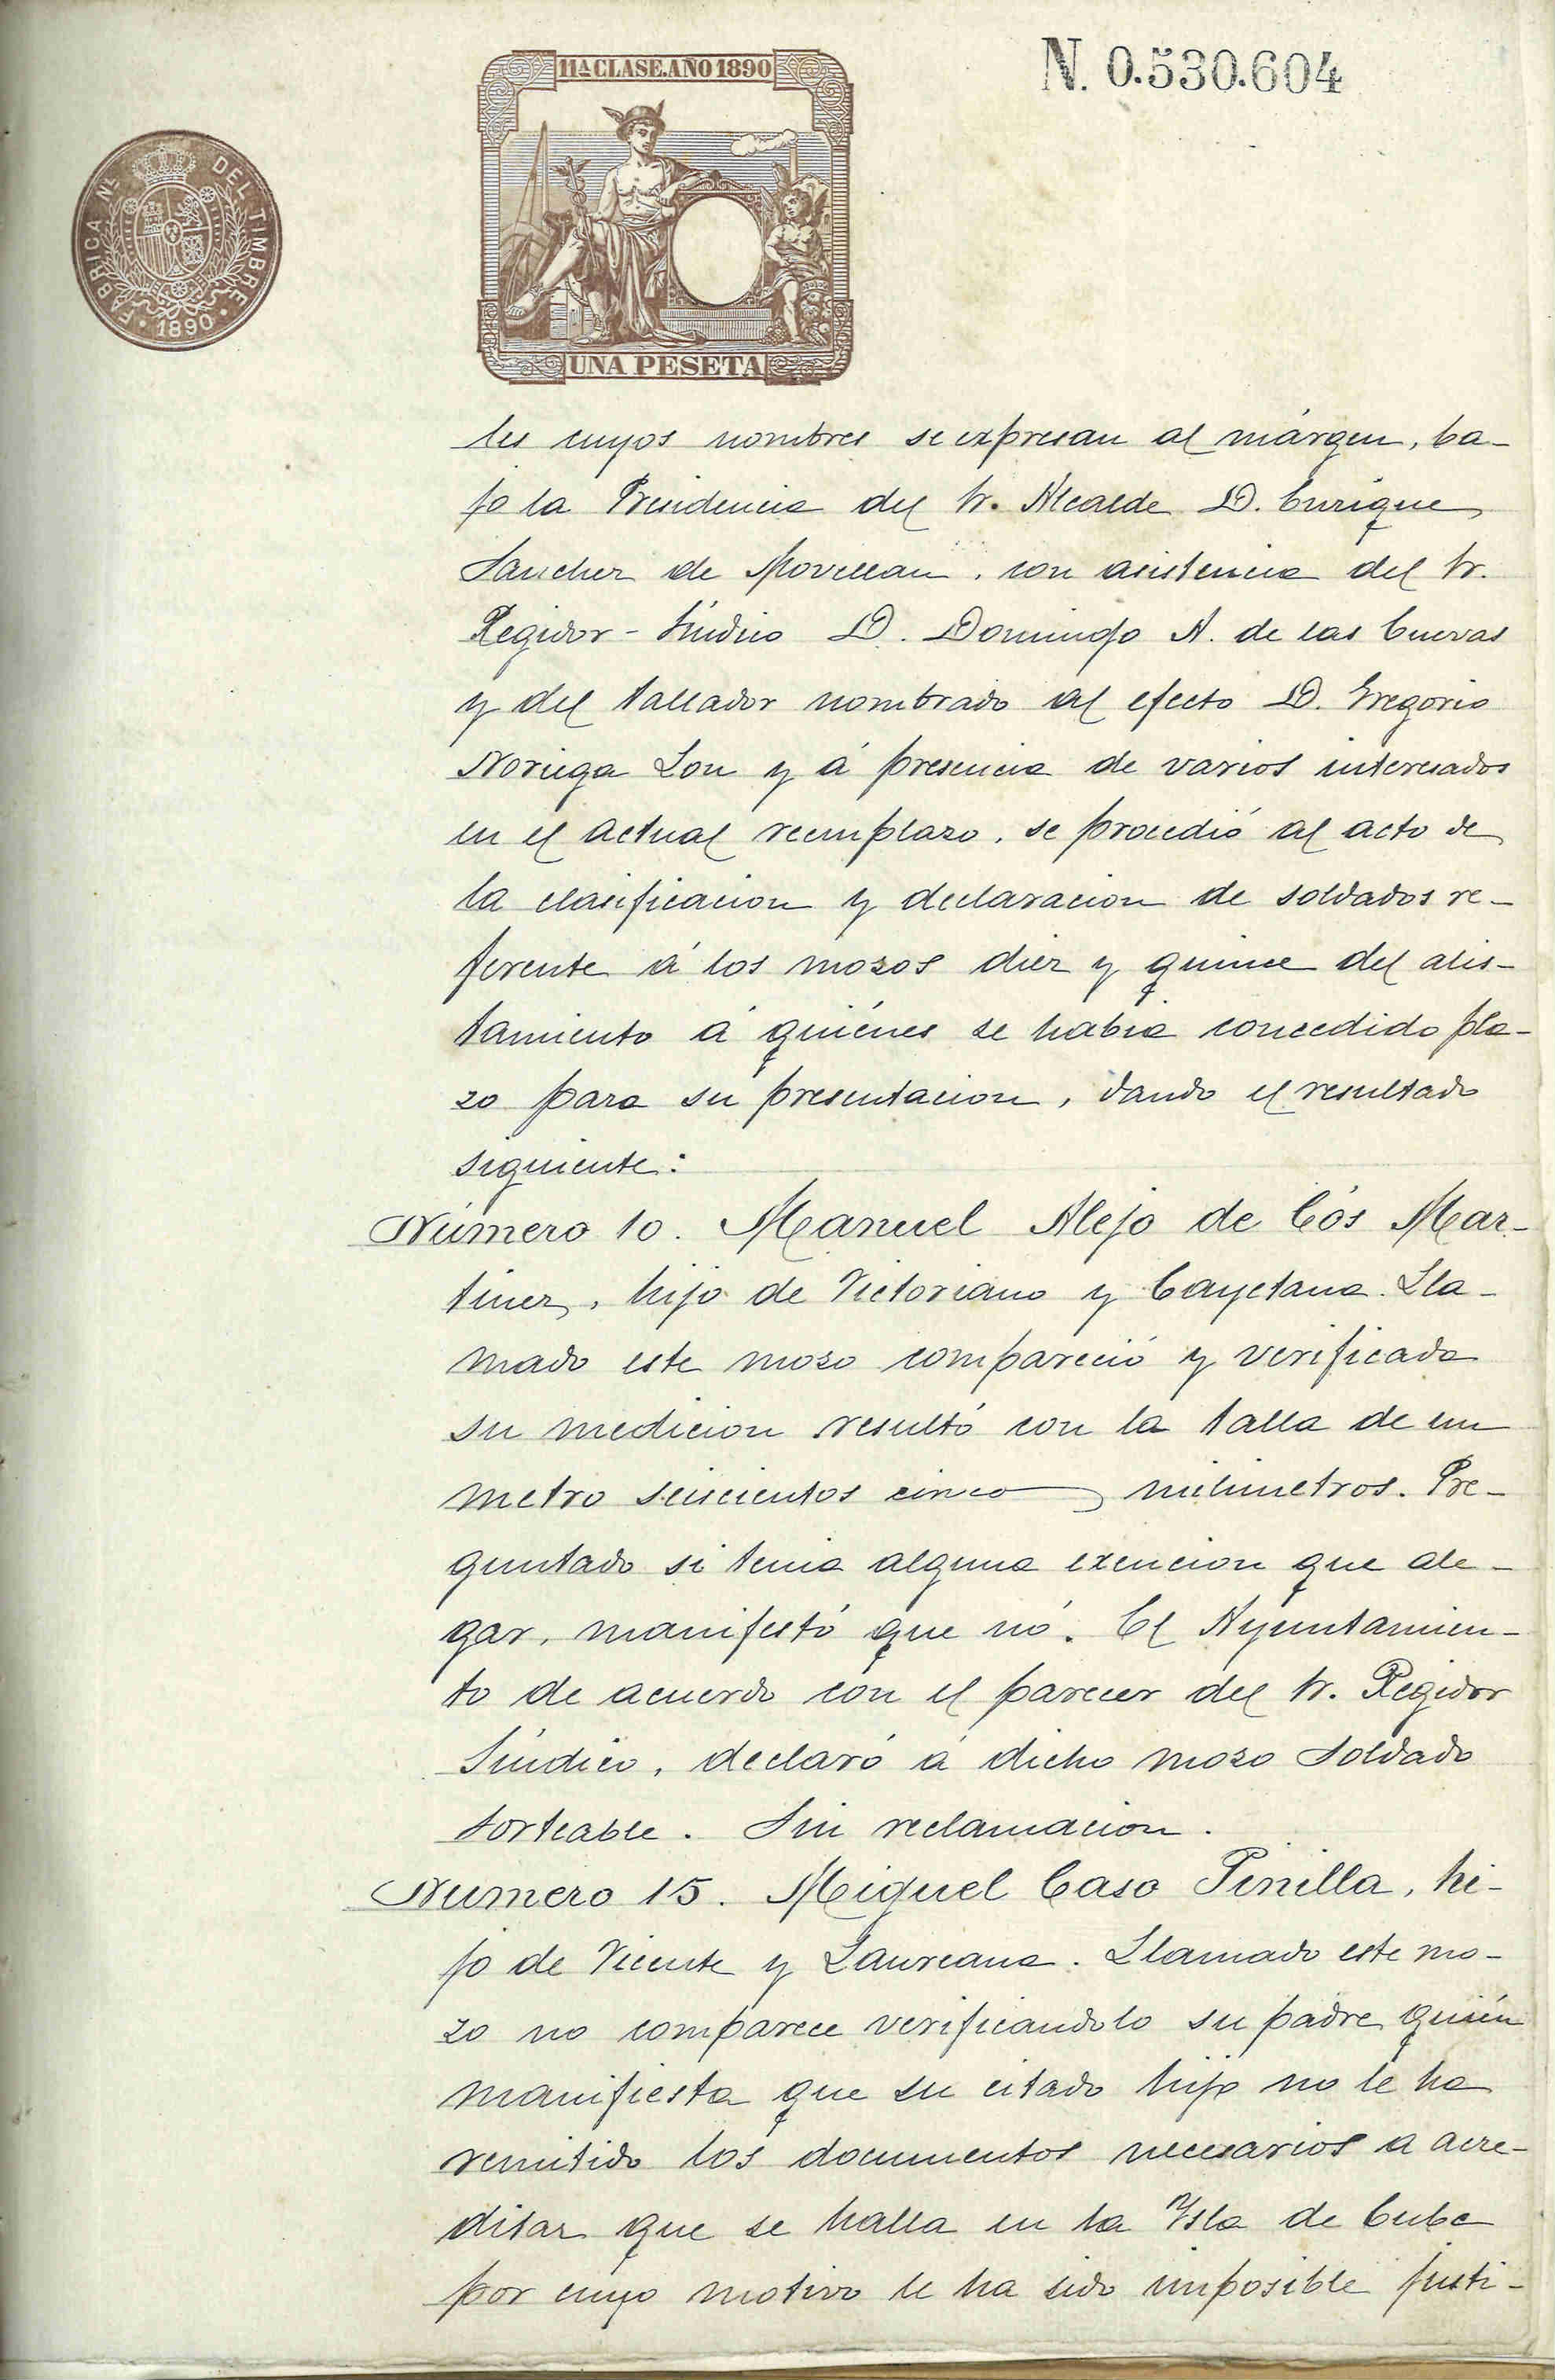 11ª CLASE. AÑO 1890
N. 0.530.604
FÁBRICA Nˡ. DEL TIMBRE
· 1890 ·
UNA PESETA
les cuyos nombres se expresan al márgen, ba-
jo la Presidencia del Sr. Alcalde D. Enrique
Sanchez de Movellan, con asistencia del Sr.
Regidor-Síndico D. Domingo A. de las Cuevas
y del tallador nombrado al efecto D. Gregorio
Noriega Lon y á presencia de varios interesados
en el actual reemplazo, se procedió al acto de
la clasificacion y declaracion de soldados re-
ferente á los mozos diez y quince del alis-
tamiento á quiénes se habia concedido pla-
zo para su presentacion, dando el resultado
siguiente:
Número 10. Manuel Alejo de Cós Mar-
tinez, hijo de Victoriano y Cayetana. Lla-
mado este mozo compareció y verificada
su medicion resultó con la talla de un
metro seiscientos cinco milimetros. Pre-
guntado si tenia alguna exencion que ale-
gar, manifestó que nó. El Ayuntamien-
to de acuerdo con el parecer del Sr. Regidor
Síndico, declaró á dicho mozo soldado
sorteable. Sin reclamacion.
Numero 15. Miguel Caso Pinilla, hi-
jo de Vicente y Laureana. Llamado este mo-
zo no comparece verificandolo su padre quién
manifiesta que su citado hijo no le ha
remitido los documentos necesarios a acre-
ditar que se halla en la Ysla de Cuba
por cuyo motivo le ha sido imposible justi-